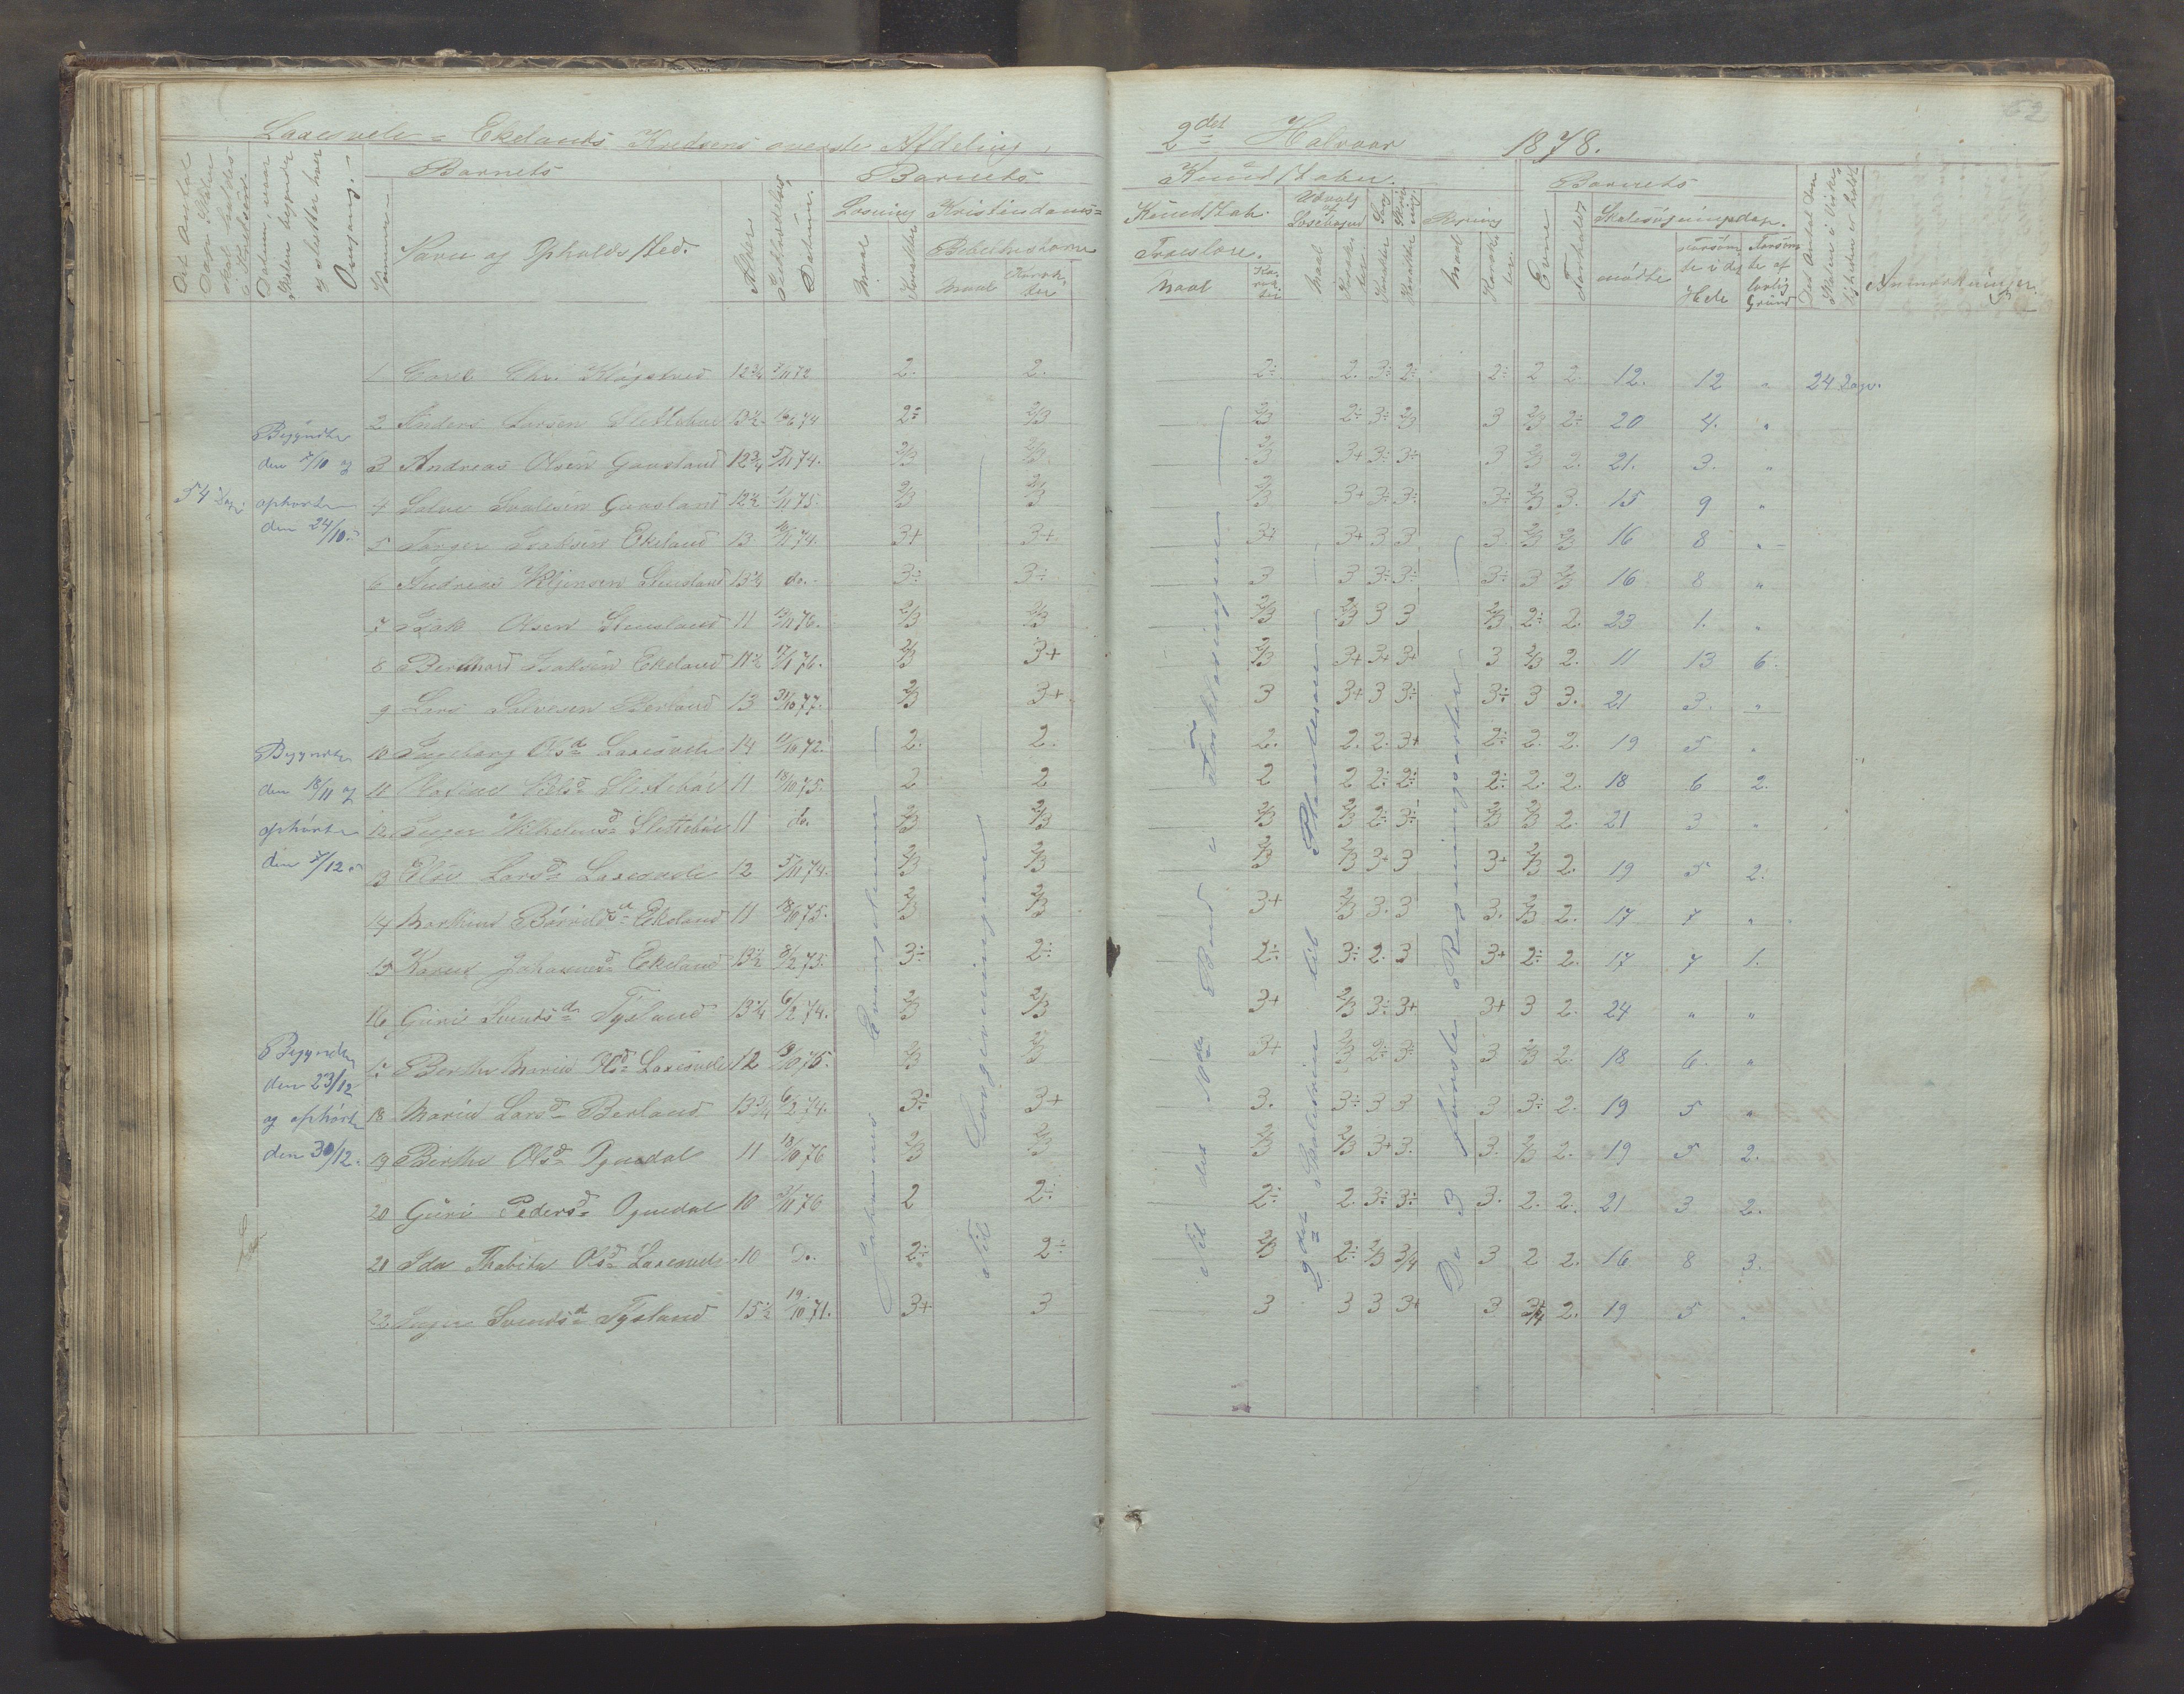 52
Laxesvele = Ekelands Kredsens øverste Afdeling,
2det Halvaar 1878.
Det Antal Dage Skolen skal holdes i Kredsen.
Datum, naar Skolen begynder og slutter hver Omgang.
Barnets
Nummer
Navn og Opholds/ted.
Alder
Indtrædelses Datum.
Barnets
Læsning
Maal
Karakter
Kristendoms=
Bibelhistorie
Maal
Karakter
Kund/kaber.
Kund/kab.
Troeslære.
Maal
Karakter
Udvalg af Læsebogen
Maal
Karakter
Sang
Karakter
Skrivning
Karakter
Regning
Maal
Karakter
Barnets
Evne
Forhold
Skolesøgningsdage.
mødte
forsømte i det Hele
forsømte af lovlig Grund
Det Antal Dage Skolen i Virkeligheden er holdt
Anmærkninger.
54 Dage
Begyndte den 7/10 og ophørte den 24/10.
Begyndte den 18/11 og ophørte den 7/12.
Begyndte den 23/12 og ophørte den 30/12.
Johannes Evangelium
Til Langerningen
Til det 10de Bud i Forklaringen
2det Skoletrin til Planterne
De 3 første Regningsarter
1 Carl Chr. 12 3/4 72 2. 2. 2÷ 2. 3÷ 2÷ 2÷ 2 2. 12. 12 " 24 Dage.
2 Anders Larsen Slettebø 13 1/2 74 2÷ 2/3 2/3 2÷ 3÷ 2/3 3 2/3 2÷ 20 4. "
3 Andreas Olsen Gausland 12 3/4 5/11 74. 2/3 2/3 2/3 3+ 3÷ 3÷ 3 2/3 2. 21. 3. "
4 Gausland 12 1/2 75. 2/3 2/3 2/3 3+ 3÷ 3÷ 3÷ 2/3 3. 15 9 "
5 Isaksen Ekeland 13 74. 3+ 3+ 3+ 3+ 3 3 3 2/3 2/3 16 8 "
6 Andreas do. 3÷ 3÷ 3 3 3÷ 3÷ 3÷ 3 2/3 16 8 "
7 Isak Olsen 11 76. 2/3 2/3 2/3 2/3 3 3 2/3 2÷ 2. 23 1. "
8 Bernhard Isaksen Ekeland 11 1/2 76. 2/3 3+ 2/3 3+ 3+ 3+ 3 2/3 2. 11 13 6.
9 Lars Salvesen Berland 13 31/10 77. 2/3 3+ 3 3+ 3 3÷ 3÷ 3 3. 21 3. "
10 Ingeborg Olsd Laxesvele 14 11/10 72. 2. 2. 2. 2. 2. 3+ 2÷ 2. 2. 19 5 "
11 Slettebø 11 18/10 75. 2 2 2 2 2÷ 2÷ 2÷ 2. 2. 18 6 2.
12 Inger Slettebø 11 do. 2/3 2/3 2/3 2/3 2÷ 3÷ 2/3 2/3 2. 21 3 "
13 Elise Larsd Laxesvele 12 5/11 74. 2/3 2/3 2/3 2/3 3+ 3 3+ 2/3 2. 19 5 2.
14 Ekeland 11 18/10 75. 2/3 2/3 3+ 2/3 3. 3 3. 2/3 2. 17 7 "
15 Karen Johannesd Ekeland 13 1/2 8/2 73. 3÷ 2÷ 2÷ 3÷ 2. 3 3+ 2÷ 2. 17 7 1.
16 Guri Svendsd Tysland 13 1/4 6/2 74. 2/3 2/3 3+ 2/3 3÷ 3+ 3+ 3 2. 24 " "
17 Berthe Marie Olsd Laxesvele 12 18/10 75. 2/3 2/3 3+ 2/3 2÷ 3÷ 3 2/3 2. 18 6. "
18 Marie Larsd Berland 13 3/4 6/2 74. 3÷ 3+ 3. 3÷ 3 3 3 3÷ 2. 19 5 "
19 Birthe Olsd Ognedal 11 18/10 76 2/3 2/3 2/3 2/3 3+ 3. 3. 2/3 2. 19 5 2.
20 Guri Pedersd Ognedal 10 76 2 2÷ 2÷ 2. 3÷ 3÷ 3. 2. 2. 21 3 2.
21 Ida Thabita Olsd Laxesvele 10 Do. 2÷ 2÷ 2/3 2÷ 2/3 3/4 3 2 2. 16 8 3.
22 Inger Svendsd Tysland 15 1/2 19/10 71. 3+ 3 3 3 3 3+ 3 3/4 2. 19 5 "